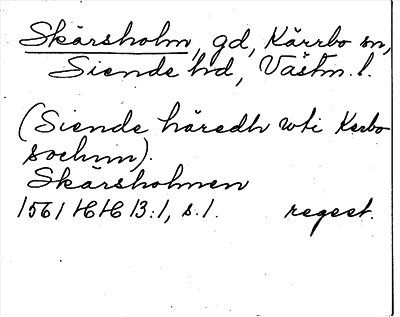 Skärsholm, gd, Kärrbo sn,
Siende hd, Västm. l.
(Siende häredh wti Kerbo
sochnn).
Skärsholmen
1561 HH B:1, s.1. regest.